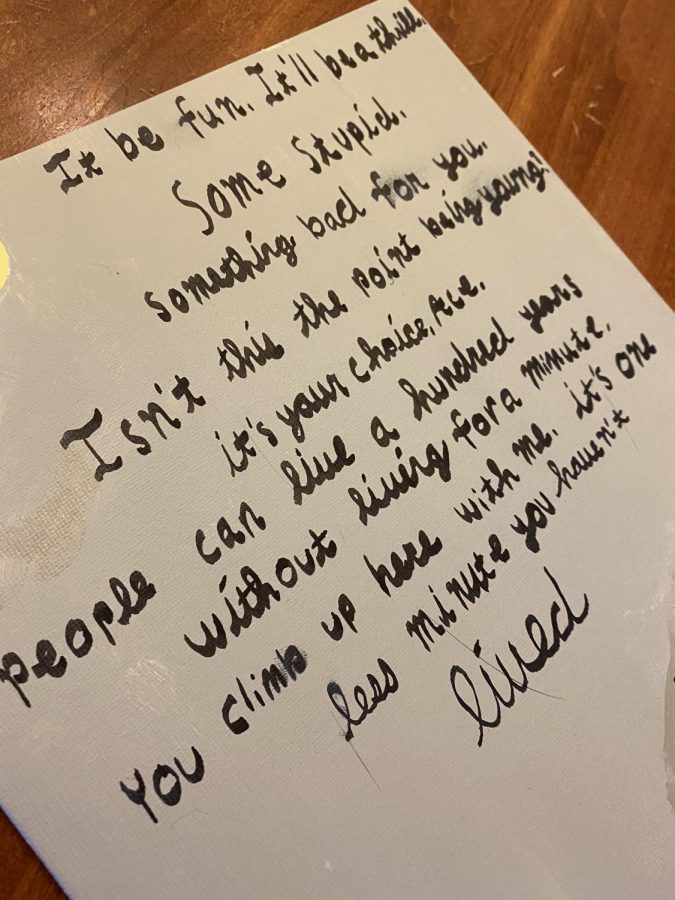 It be fun. It'll be a thrill.
Some Stupid.
something bad for you.
Isn't this the point being young?
it's your choice, Ace.
people can live a hundred years
without living for a minute.
You climb up here with me. it's one
less minute you haven't
lived